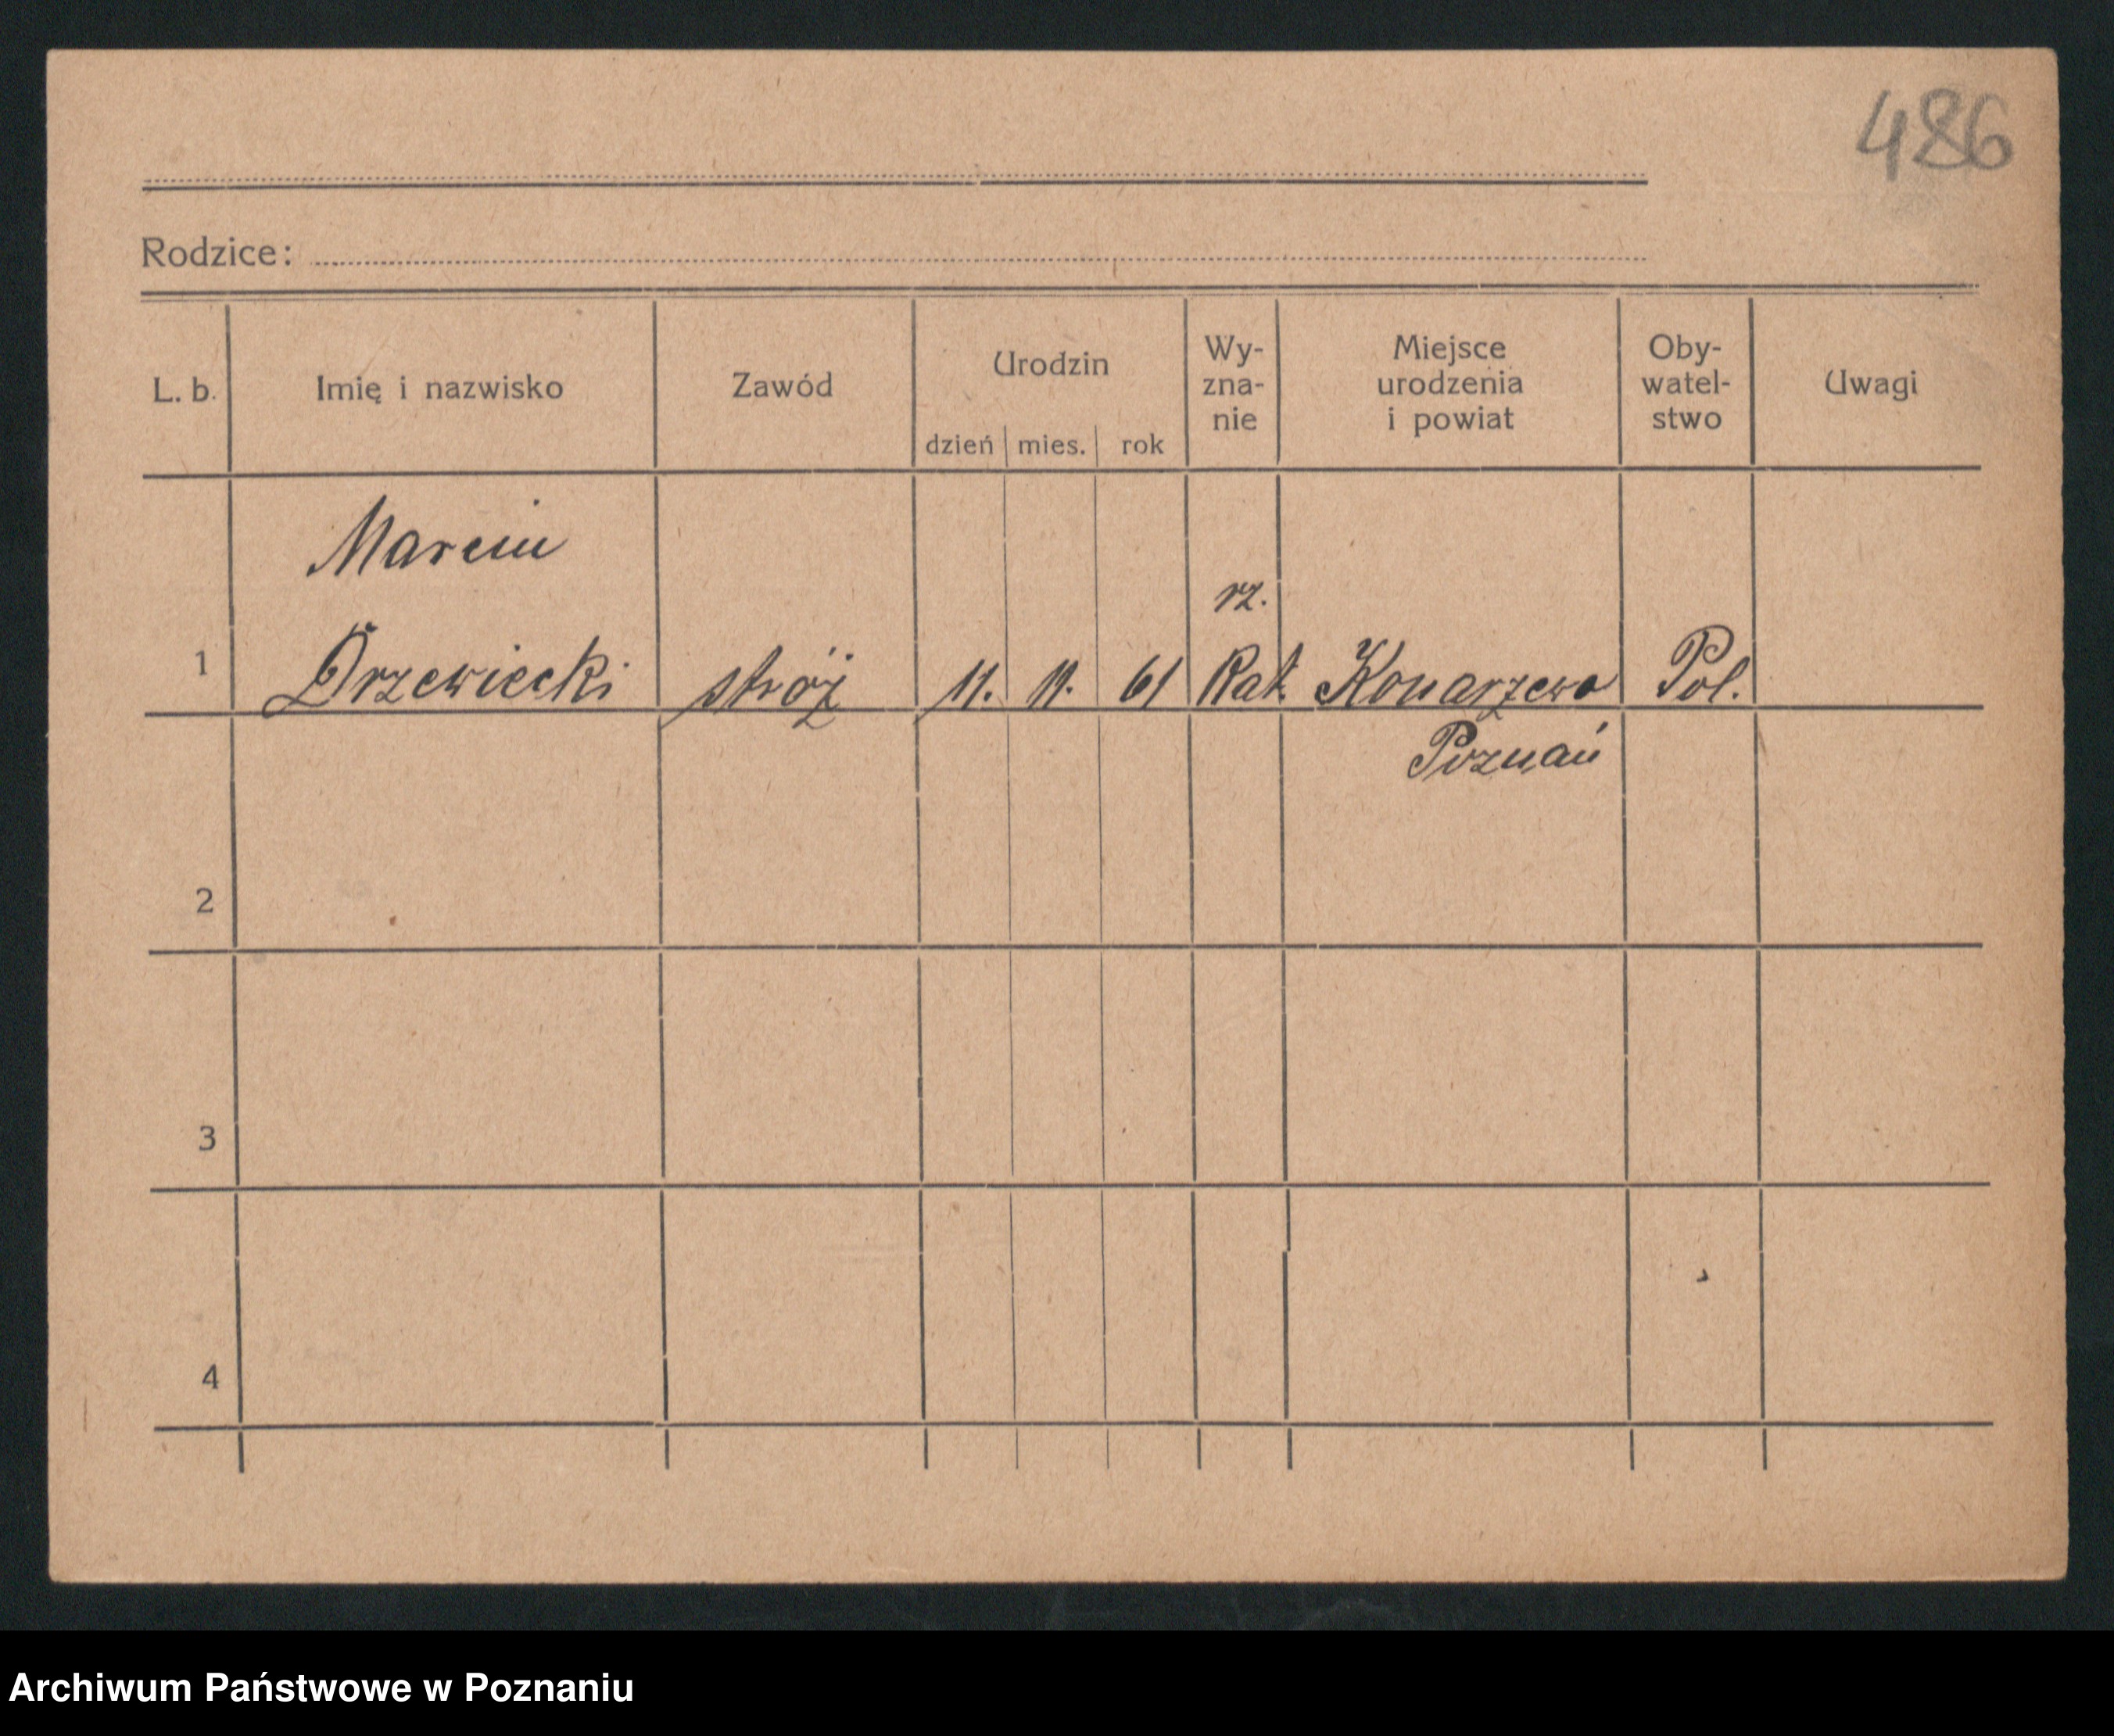 486
Rodzice:
L. b. Imię i nazwisko Zawód Urodzin dzień mies. rok Wy-zna-nie Miejsce urodzenia i powiat Oby-watel-stwo Uwagi
Marcin
rz.
1 Drzewiecki stróż 11. 11. 61 Kat. Konarzewo Pol.
Poznań
2
3
4
Archiwum Państwowe w Poznaniu